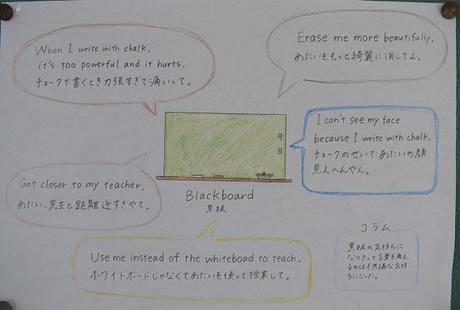 When I write with chalk,
it's too powerful and it hurts.
チョークで書くとき力強すぎて痛いって。
Erase me more beautifully.
あたいをもっと綺麗に消してよ。
I can't see my face
because I write with chalk.
チョークのせいであたいの顔
見えへんやん。
月
日
Get closer to my teacher.
あたい、先生と距離近すぎやて。
Blackboard
黒板
Use me instead of the whiteboad to teach.
ホワイトボードじゃなくてあたいを使って授業して。
コラム
黒板の気持ちに
なりきって言葉を考え
るのは不思議な気持
ちになった。